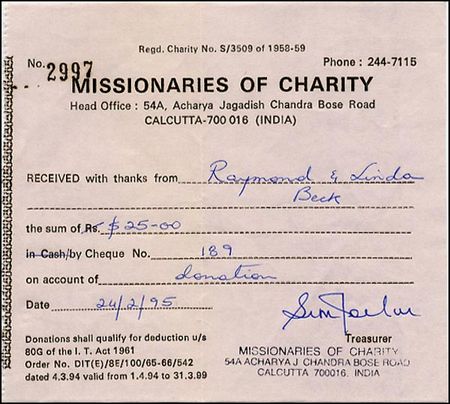 Regd. Charity No. S/3509 of 1958-59
No. 2997 Phone : 244-7115
MISSIONARIES OF CHARITY
Head Office : 54A, Acharya Jagadish Chandra Bose Road
CALCUTTA-700 016 (INDIA)
RECEIVED with thanks from Raymond & Linda
Beck
the sum of Rs. $ 25-00
in Cash/by Cheque No. 189
on account of donation
Date 24/2/95
Treasurer
Donations shall qualify for deduction u/s
80G of the I. T. Act 1961
Order No. DIT(E)/8E/100/65-66/542
dated 4.3.94 valid from 1.4.94 to 31.3.99
MISSIONARIES OF CHARITY
54A ACHARYA J CHANDRA BOSE ROAD
CALCUTTA 700016. INDIA